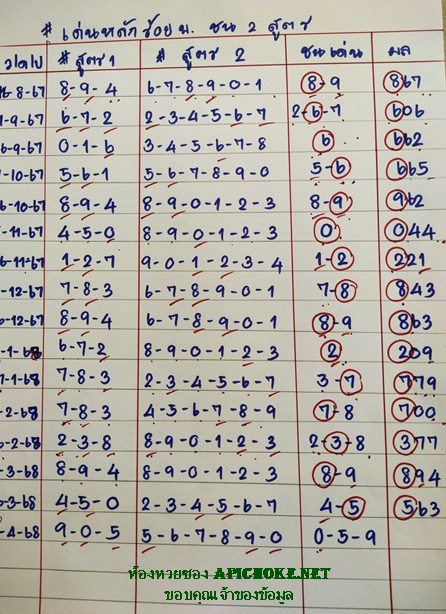 # เด่นหลักร้อย บ. ชน 2 สูตร
ว/ด/ป # สูตร 1 # สูตร 2 ชนเด่น ผล
16-8-67 8-9-4 6-7-8-9-0-1 8-9 867
1-9-67 6-7-2 2-3-4-5-6-7 2-6-7 606
6-9-67 0-1-6 3-4-5-6-7-8 6 662
-10-67 5-6-1 5-6-7-8-9-0 5-6 665
6-10-67 8-9-4 8-9-0-1-2-3 8-9 962
-11-67 4-5-0 8-9-0-1-2-3 0 044
6-11-67 1-2-7 9-0-1-2-3-4 1-2 221
-12-67 7-8-3 6-7-8-9-0-1 7-8 843
6-12-67 8-9-4 6-7-8-9-0-1 8-9 863
-1-68 6-7-2 8-9-0-1-2-3 2 209
7-1-68 7-8-3 2-3-4-5-6-7 3-7 779
-2-68 7-8-3 4-5-6-7-8-9 7-8 700
6-2-68 2-3-8 8-9-0-1-2-3 2-3-8 377
-3-68 8-9-4 8-9-0-1-2-3 8-9 894
6-3-68 4-5-0 2-3-4-5-6-7 4-5 563
-4-68 9-0-5 5-6-7-8-9-0 0-5-9
ห้องหวยซอง APICHOKE.NET
ขอบคุณเจ้าของข้อมูล